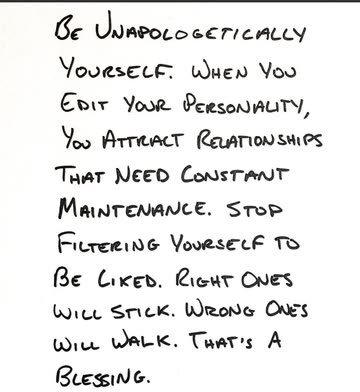 Be Unapologetically
Yourself. When You
Edit Your Personality,
You Attract Relationships
That Need Constant
Maintenance. Stop
Filtering Yourself to
Be Liked. Right Ones
Will Stick. Wrong Ones
Will Walk. That's A
Blessing.